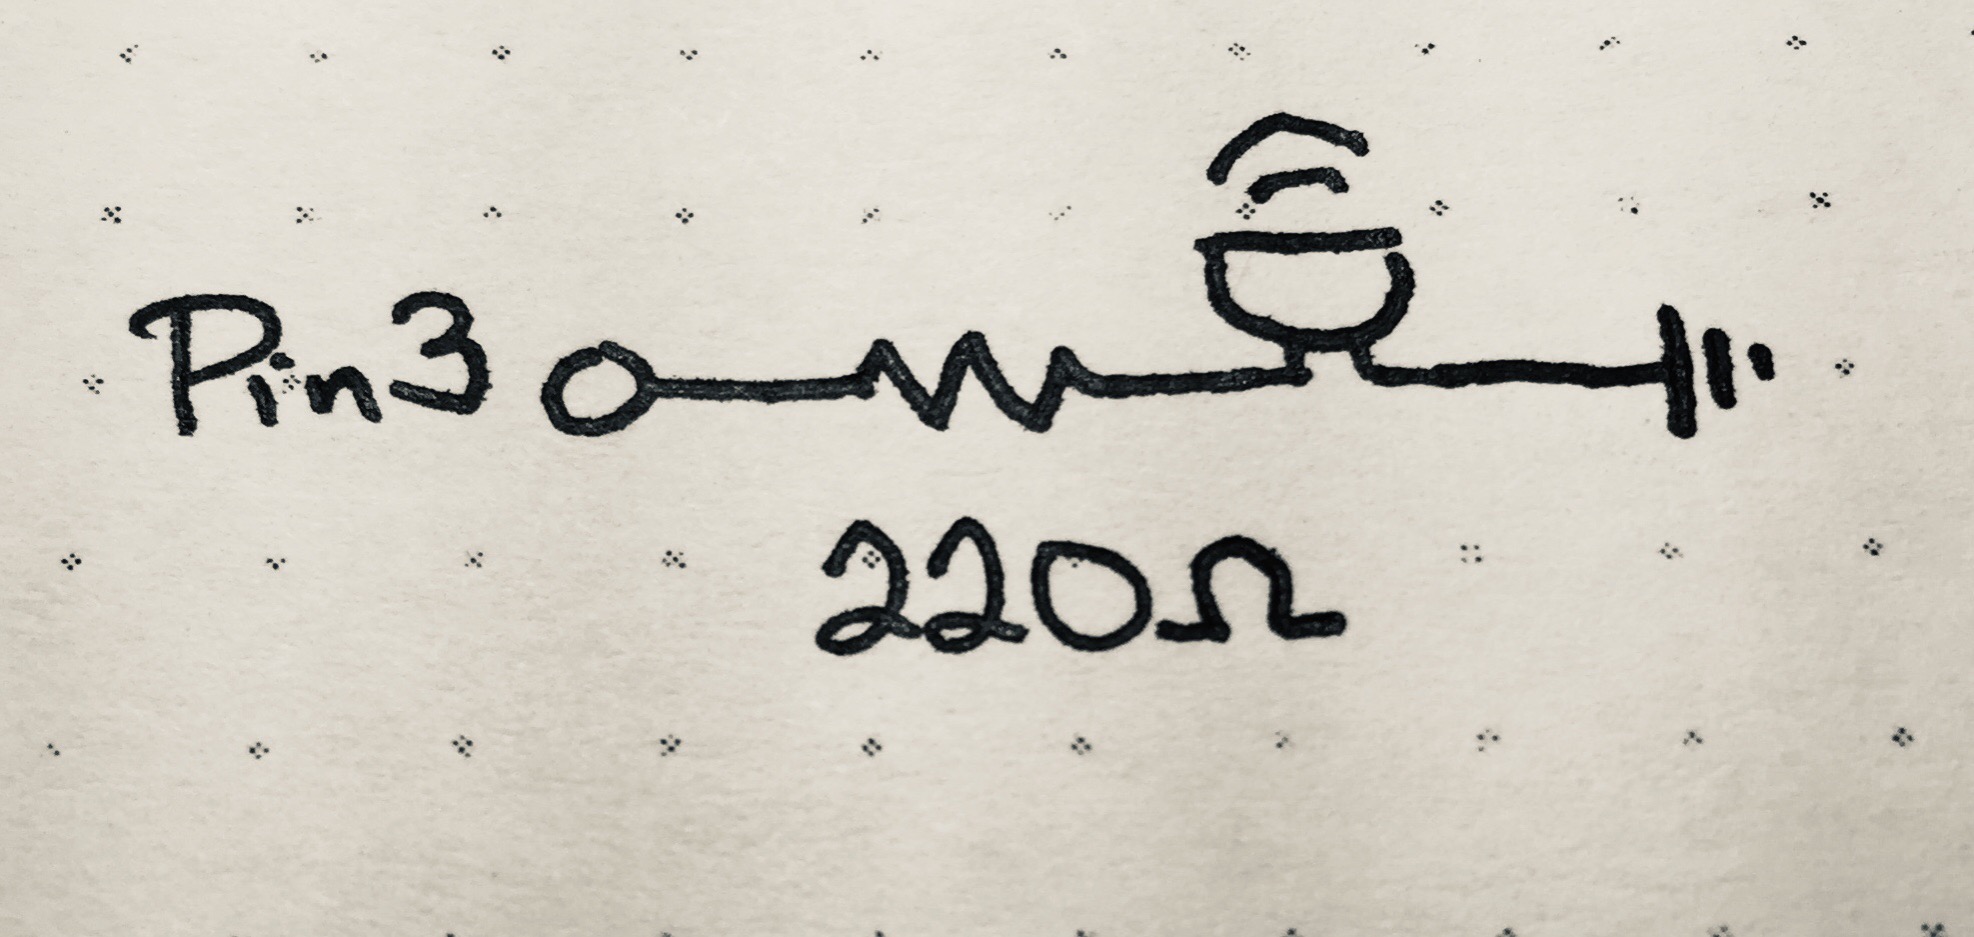 Pin3
220Ω